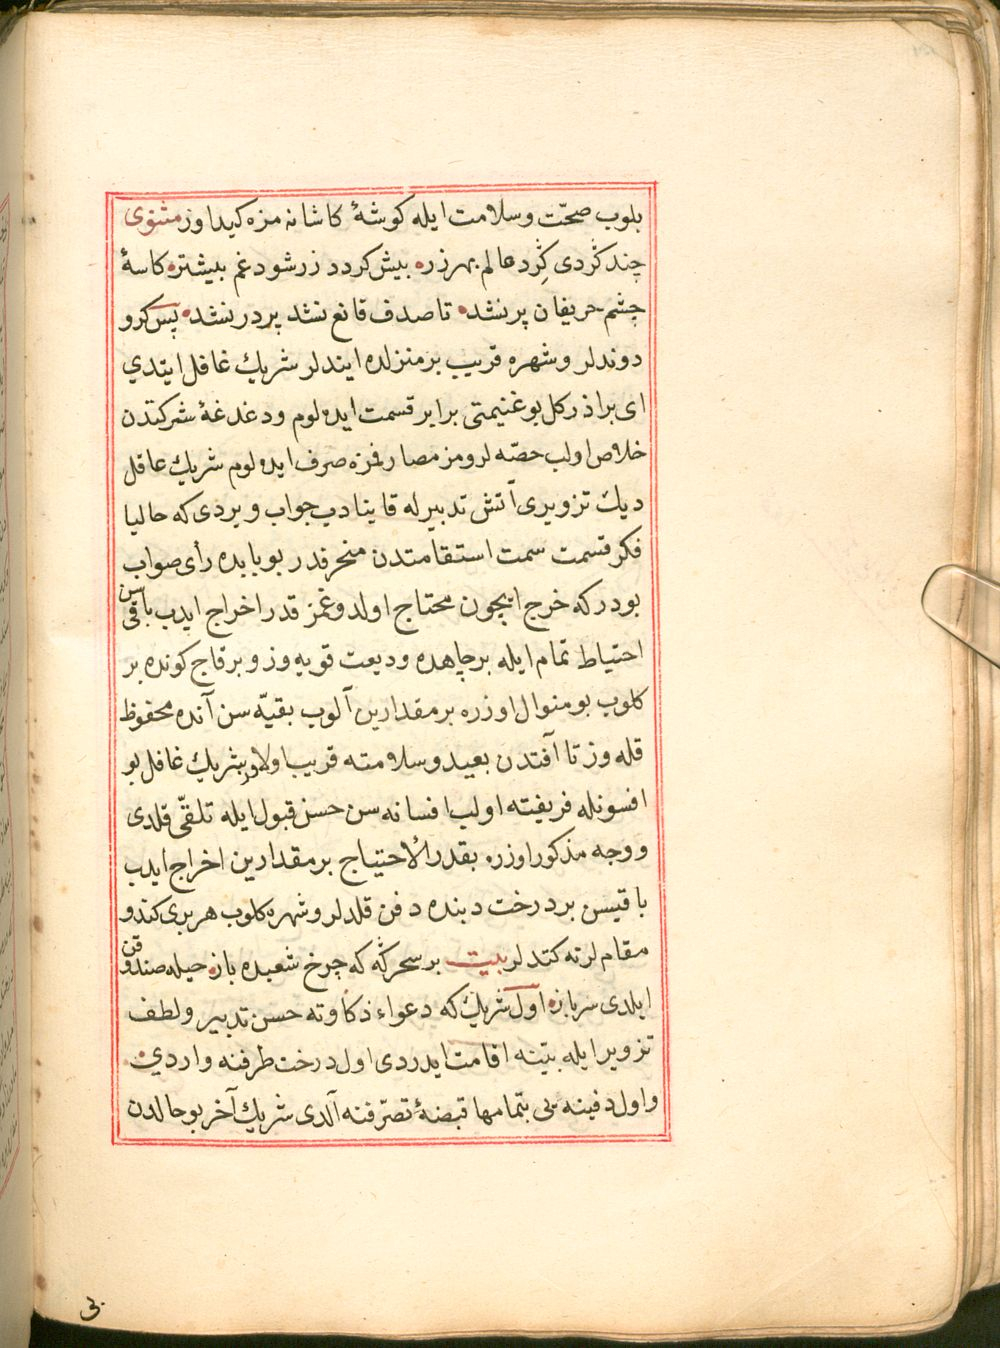 بلوب صحّت وسلامت ايله كوشهٔ كاشانه مزه كيداوز مثنوى
چند كَردى كِرد عالم بهر زر ٥ بيش كردد زر شود غم بيشتر ٥ كاسهٔ
چشم حريفان پر نشد ٥ تا صدف قانع نشد پر در نشد ٥ پس كرو
دوندلر وشهره قريب بر منزلده ايندلر شريك غافل ايتدي
اى براذر كل بو غنيمتى برابر قسمت ايده لوم ودغدغهٔ شركتدن
خلاص اولب حصّه لرومز مصارفمزه صرف ايده لوم شريك عاقل
ديك تزويرى آتش تدبيرله قاينادب جواب ويردى كه حاليا
فكر قسمت سمت استقامتدن منحرفدر بو بابده رأى صواب
بودر كه خرج ايچون محتاج اولدوغمز قدر اخراج ايدب باقى سن
احتياط تمام ايله بر چاهده وديعت قويه وز وبر قاج كونده بر
كلوب بو منوال اوزره بر مقدارين آلوب بقيّه سن آنده محفوظ
قله وز تا آفتدن بعيد وسلامته قريب اولاوز شريك غافل بو
افسونله فريفته اولب افسانه سن حسن قبول ايله تلقّى قلدى
ووجه مذكور اوزره بقدر الاحتياج بر مقدارين اخراج ايدب
باقيسن بر درخت دبنده دفن قلدلر وشهره كلوب هر برى كندو
مقاملرته كتدلر بيت بر سحر كه كه چرخ شعبده باز ٥ حيله صندوقن
ايلدى سر باز ٥ اول شريك كه دعواء ذكاوته حسن تدبير ولطف
تزوير ايله بيّنه اقامت ايدردى اول درخت طرفنه واردي ٥
واول دفينه يى بتمامها قبضهٔ تصرّفنه آلدى شريك آخر بو حالدن